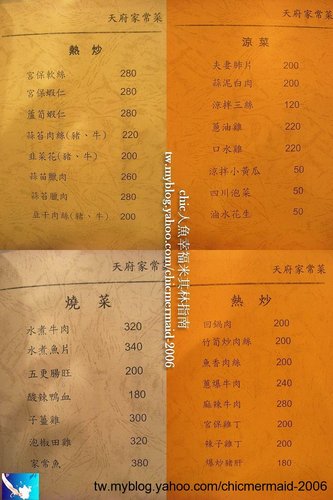 天府家常菜
熱炒
宮保軟絲 280
宮保蝦仁 280
蘆筍蝦仁 280
蒜苔肉絲(豬、牛) 220
韭菜花(豬、牛) 200
蒜苗臘肉 260
蒜苔臘肉 280
豆干肉絲(豬、牛) 200
天府家常菜
涼菜
夫妻肺片 200
蒜泥白肉 200
涼拌三絲 120
蔥油雞 220
口水雞 220
涼拌小黃瓜 50
四川泡菜 50
滷水花生 50
天府家常菜
燒菜
水煮牛肉 320
水煮魚片 340
五更腸旺 200
酸辣鴨血 180
子薑雞 300
泡椒田雞 320
家常魚 380
天府家常菜
熱炒
回鍋肉 200
竹筍炒肉絲 200
魚香肉絲 200
蔥爆牛肉 240
麻辣牛肉 280
宮保雞丁 200
辣子雞丁 200
爆炒豬肝 180
chic人魚幸福米其林指南
tw.myblog.yahoo.com/chicmermaid-2006
tw.myblog.yahoo.com/chicmermaid-2006